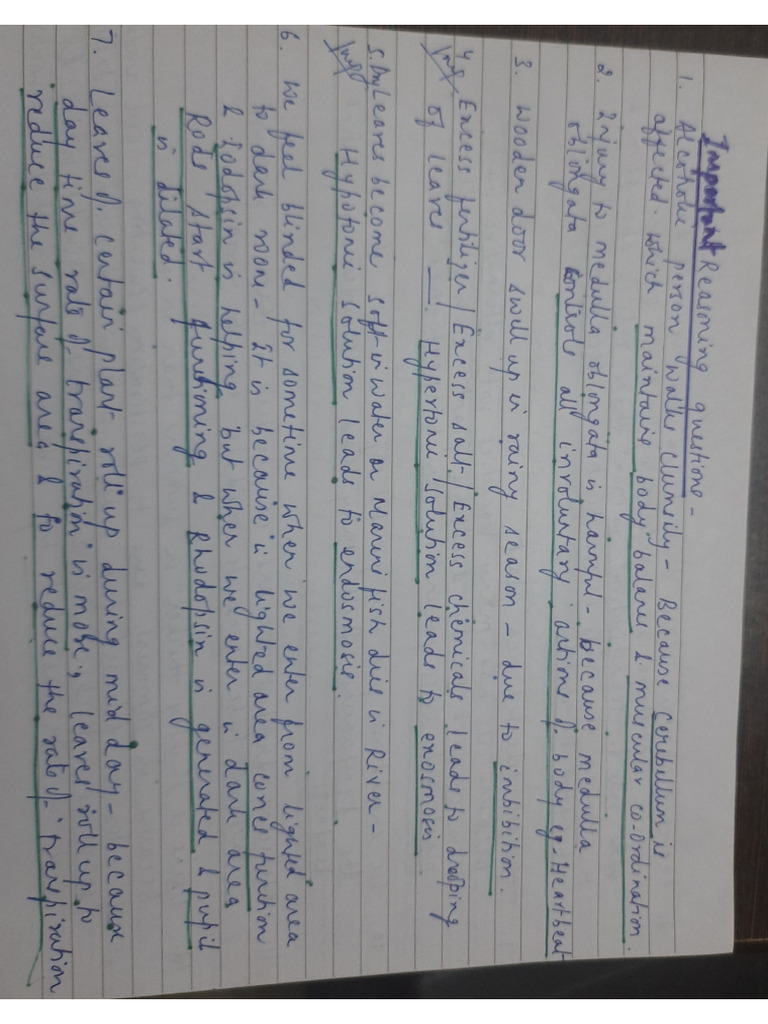 Important Reasoning questions -
1. Alcoholic person walks clumsily - Because Cerebellum is
affected. which maintains body balance & muscular co-ordination.
2. Injury to medulla oblongata is harmful - because medulla
oblongata controls all involuntary actions of body eg. Heartbeat
3. Wooden door swell up in rainy season - due to imbibition.
4. Excess fertilizer / Excess salt / Excess chemicals leads to drooping
Imp of leaves ___. Hypertonic solution leads to exosmosis
5. Leaves become soft in water or Marine fish dies in River -
Imp Hypotonic solution leads to endosmosis.
6. We feel blinded for sometime when we enter from lighted area
to dark room - It is because in lighted area cones function
& Iodopsin is helping but when we enter in dark area
Rods start functioning & Rhodopsin is generated & pupil
is dilated.
7. Leaves of certain plant roll up during mid day - because
day time rate of transpiration is more, leaves roll up to
reduce the surface area & to reduce the rate of transpiration